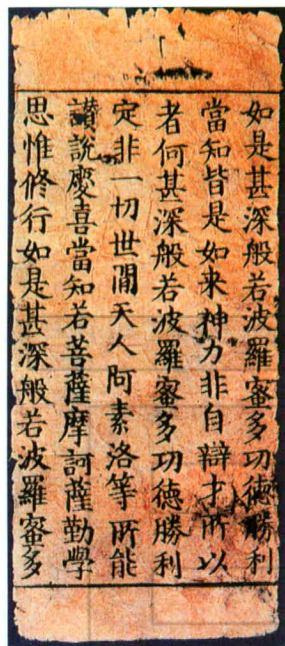 如是甚深般若波羅蜜多功德勝利
當知皆是如来神力非自辯才所以
者何甚深般若波羅蜜多功德勝利
定非一切世間天人阿素洛等所能
讚說慶喜當知若菩薩摩訶薩勤學
思惟修行如是甚深般若波羅蜜多